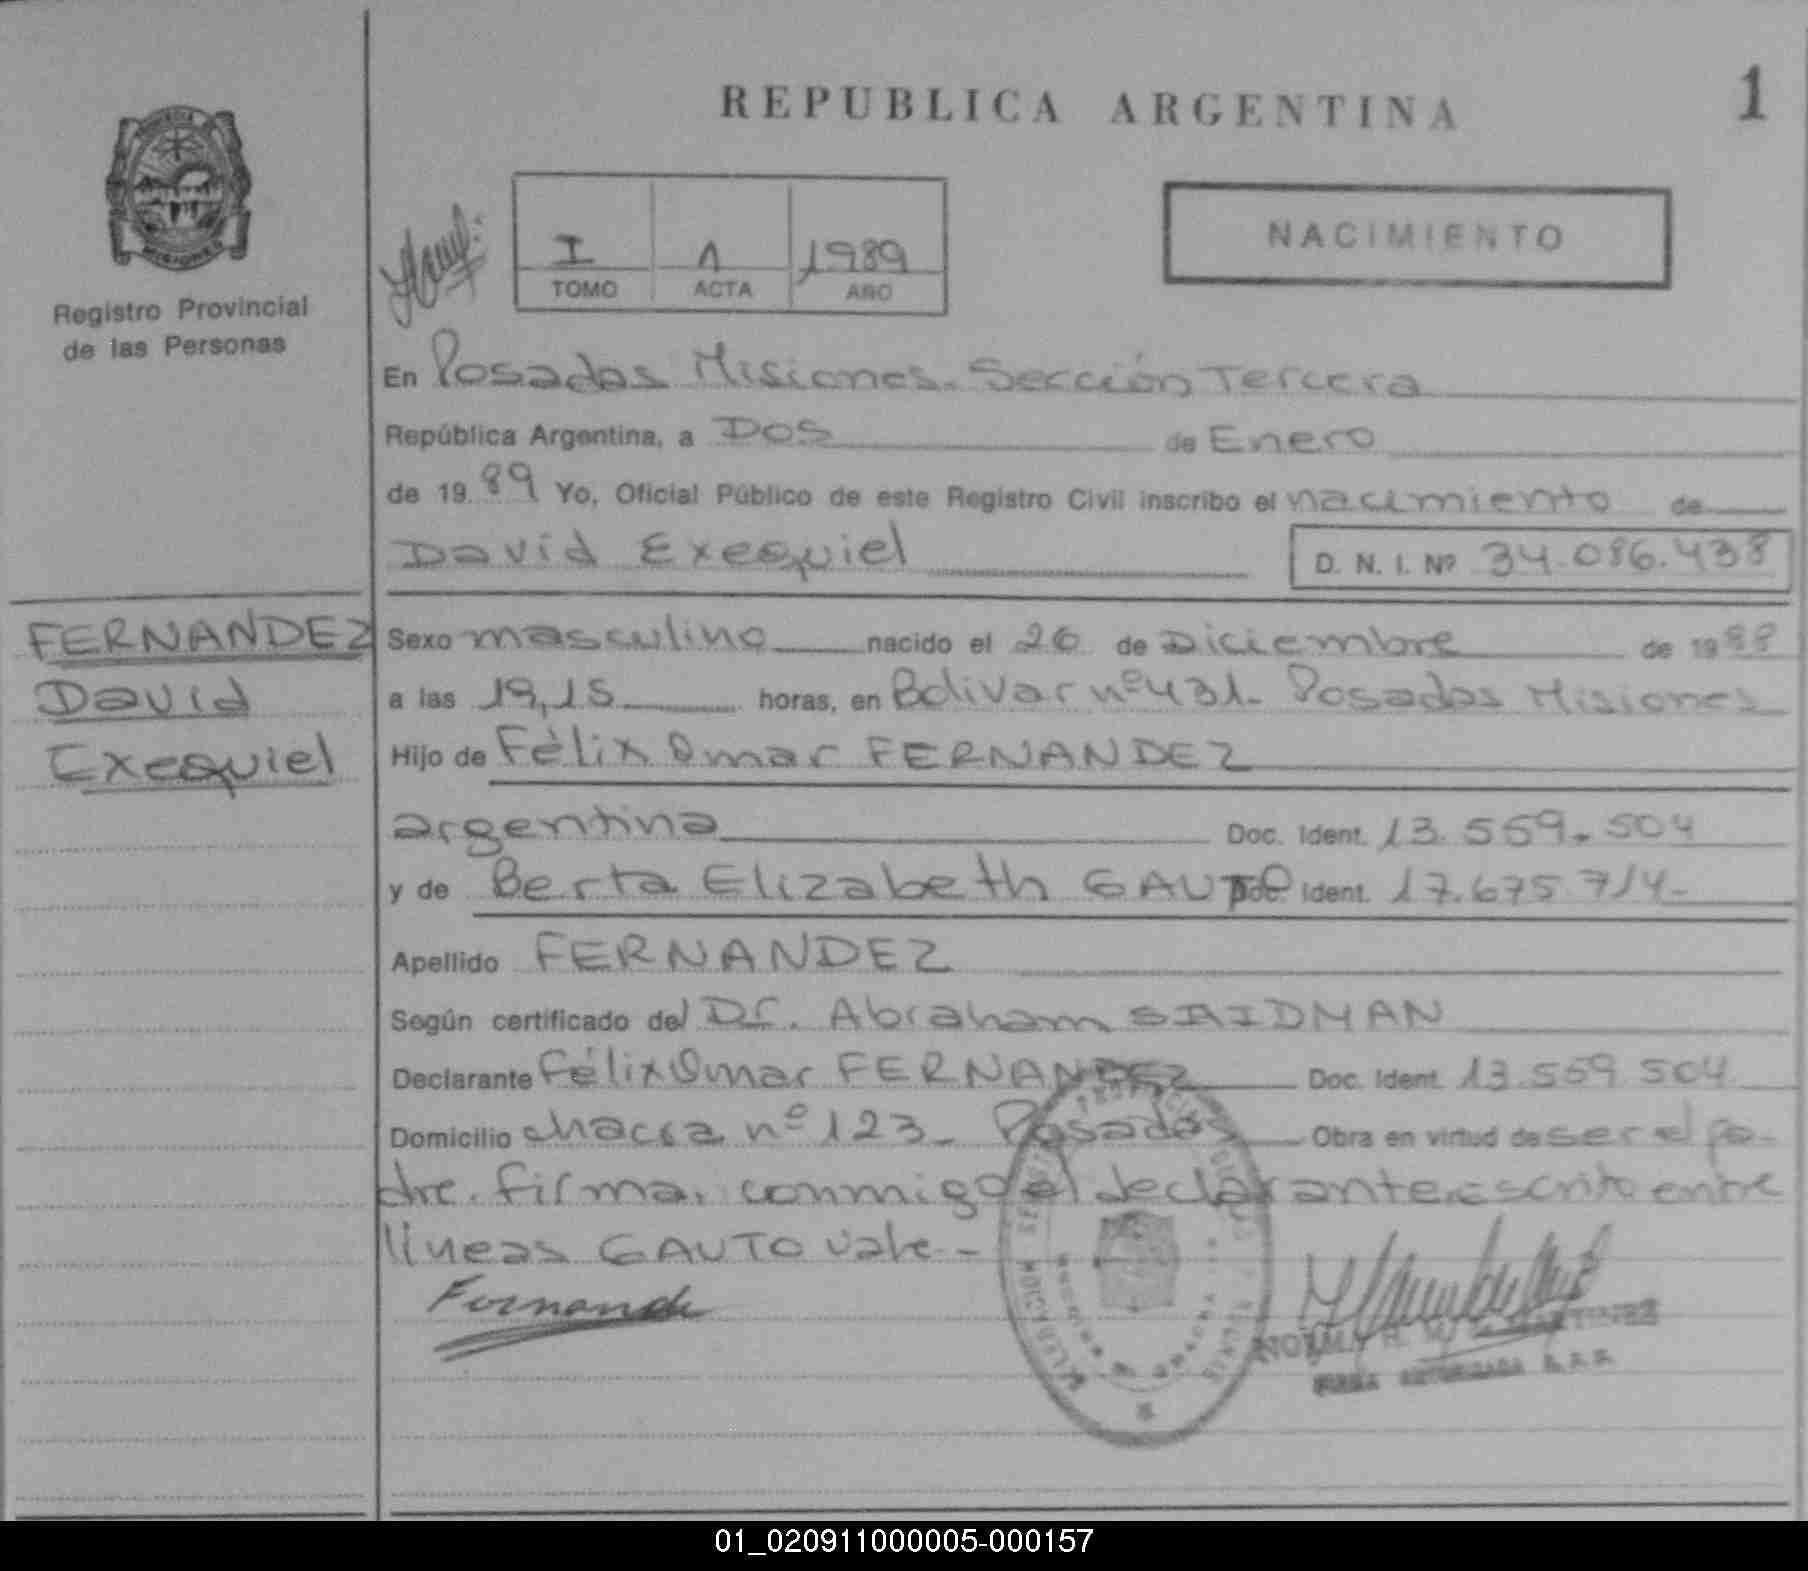 REPUBLICA ARGENTINA
1
Registro Provincial
de las Personas
I
1
1989
TOMO
ACTA
AÑO
NACIMIENTO
En Posadas Misiones. Sección Tercera
República Argentina, a Dos de Enero
de 1989 Yo, Oficial Público de este Registro Civil inscribo el nacimiento de
David Exequiel D. N. I. Nº 34.086.438
FERNANDEZ
David
Exequiel
Sexo masculino nacido el 26 de Diciembre de 1988
a las 19,15 horas, en Bolivar nº 431- Posadas Misiones
Hijo de Félix Omar FERNANDEZ
argentina Doc. Ident. 13.559.504
y de Berta Elizabeth GAUTO Doc. Ident. 17.675.714-
Apellido FERNANDEZ
Según certificado del Dr. Abraham SAIDMAN
Declarante Félix Omar FERNANDEZ Doc. Ident. 13.559.504
Domicilio chacra nº 123- Posadas Obra en virtud de ser el pa-
dre. firma. conmigo el declarante. escrito entre
lineas GAUTO vale-
Fernande
NORMA MARTINEZ
FIRMA AUTORIZADA
01_020911000005-000157